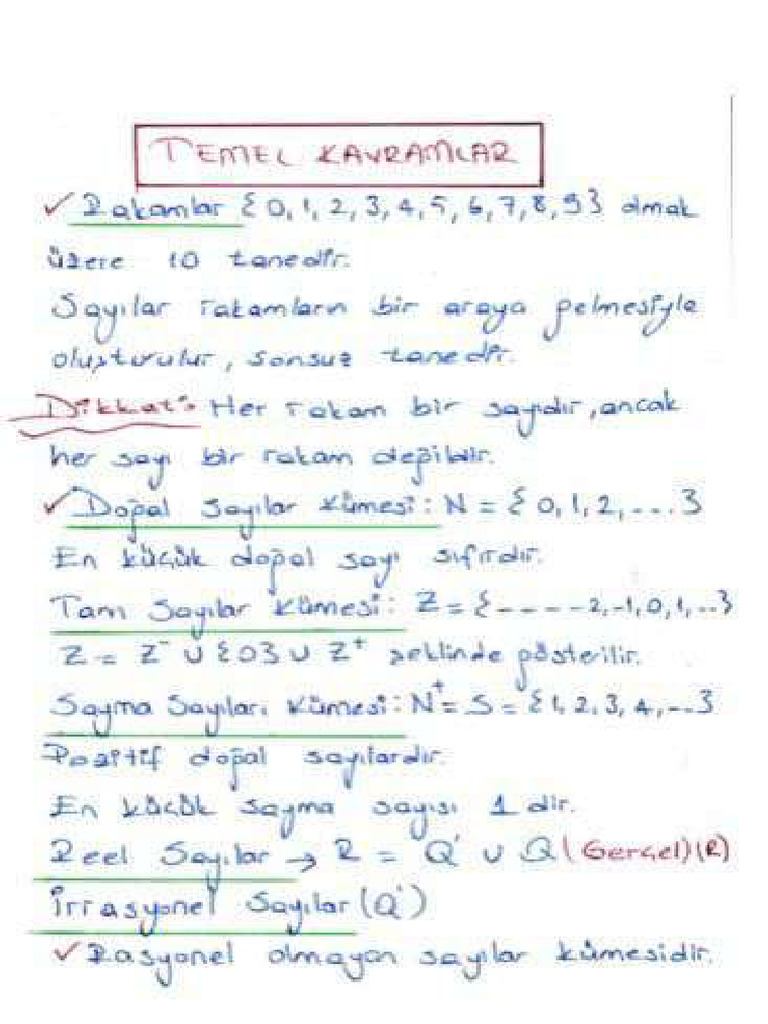 TEMEL KAVRAMLAR
✓ Rakamlar {0,1,2,3,4,5,6,7,8,9} olmak
üzere 10 tanedir.
Sayılar rakamların bir araya gelmesiyle
oluşturulur, sonsuz tanedir.
Dikkat: Her rakam bir sayıdır, ancak
her sayı bir rakam değildir.
✓ Doğal Sayılar Kümesi: N = {0,1,2,....}
En küçük doğal sayı sıfırdır.
Tam Sayılar Kümesi: Z = {-----2,-1,0,1,...}
Z = Z⁻ ∪ {0} ∪ Z⁺ şeklinde gösterilir.
Sayma Sayıları Kümesi: N⁺ = S = {1,2,3,4,...}
Pozitif doğal sayılardır.
En küçük sayma sayısı 1 dir.
Reel Sayılar → R = Q' ∪ Q (Gerçel) (R)
İrrasyonel Sayılar (Q')
✓ Rasyonel olmayan sayılar kümesidir.